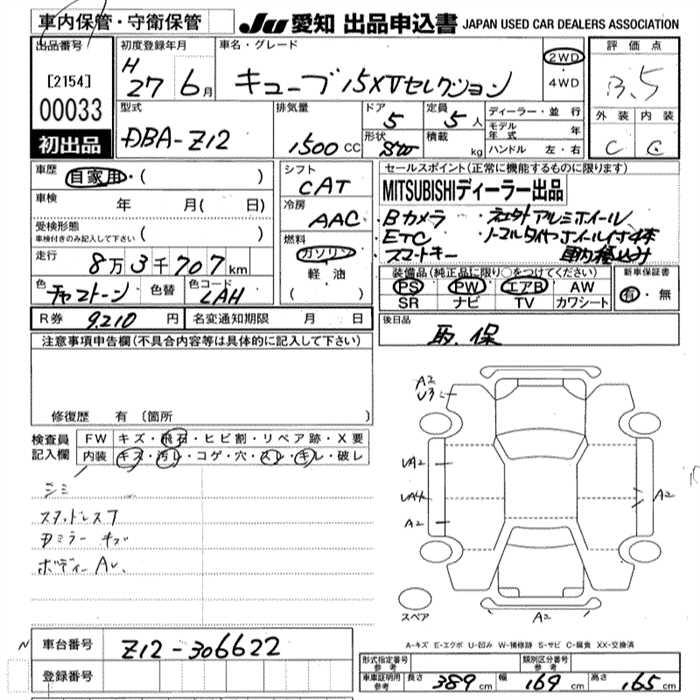 車内保管・守衛保管
JU 愛知 出品申込書 JAPAN USED CAR DEALERS ASSOCIATION
出品番号
[2154]
00033
初出品
初度登録年月
H 27 6月
車名・グレード
キューブ 15XVセレクション
2WD
4WD
評価点
3.5
外装 内装
C C
型式
DBA-Z12
排気量
1500 CC
ドア
5
形状
定員
5 人
積載
kg
ディーラー・並行
モデル年式 年
ハンドル 左・右
車歴
自家用・( )
車検 年 月( 日)
受検形態
車検付きのみ記入して下さい ( )
走行
8万3千707km
色 色替 色コード
LAH
シフト
CAT
冷房
AAC
燃料
ガソリン
軽油
( )
セールスポイント(正常に機能するものに限ります)
MITSUBISHIディーラー出品
Bカメラ 社外アルミホイール
ETC ノーマルタイヤホイール付4本
スマートキー 車内積込み
装備品(純正品に限り○をつけてください)
PS PW エアB AW
SR ナビ TV カワシート
新車保証書
有・無
R券 9210 円 名変通知期限 月 日
後日品
取.保
注意事項申告欄(不具合内容等は具体的に記入して下さい)
修復歴 有(箇所 )
検査員記入欄
FW キズ・飛石・ヒビ割・リペア跡・X要
内装 キズ・汚レ・コゲ・穴・スレ・キレ・破レ
シミ
スタッドレス7
Dミラー キズ
ボディー AU、
A2
U3
UA2
UA4
A2
A2
A2
スペア
A-キズ E-エクボ U-凹み W-補修跡 S-サビ C-腐食 XX-交換済
車台番号 Z12-306622
登録番号
形式指定番号 参考
類別区分番号 参考
車庫証明用 参考 長さ 389cm 幅 169cm 高さ 165cm